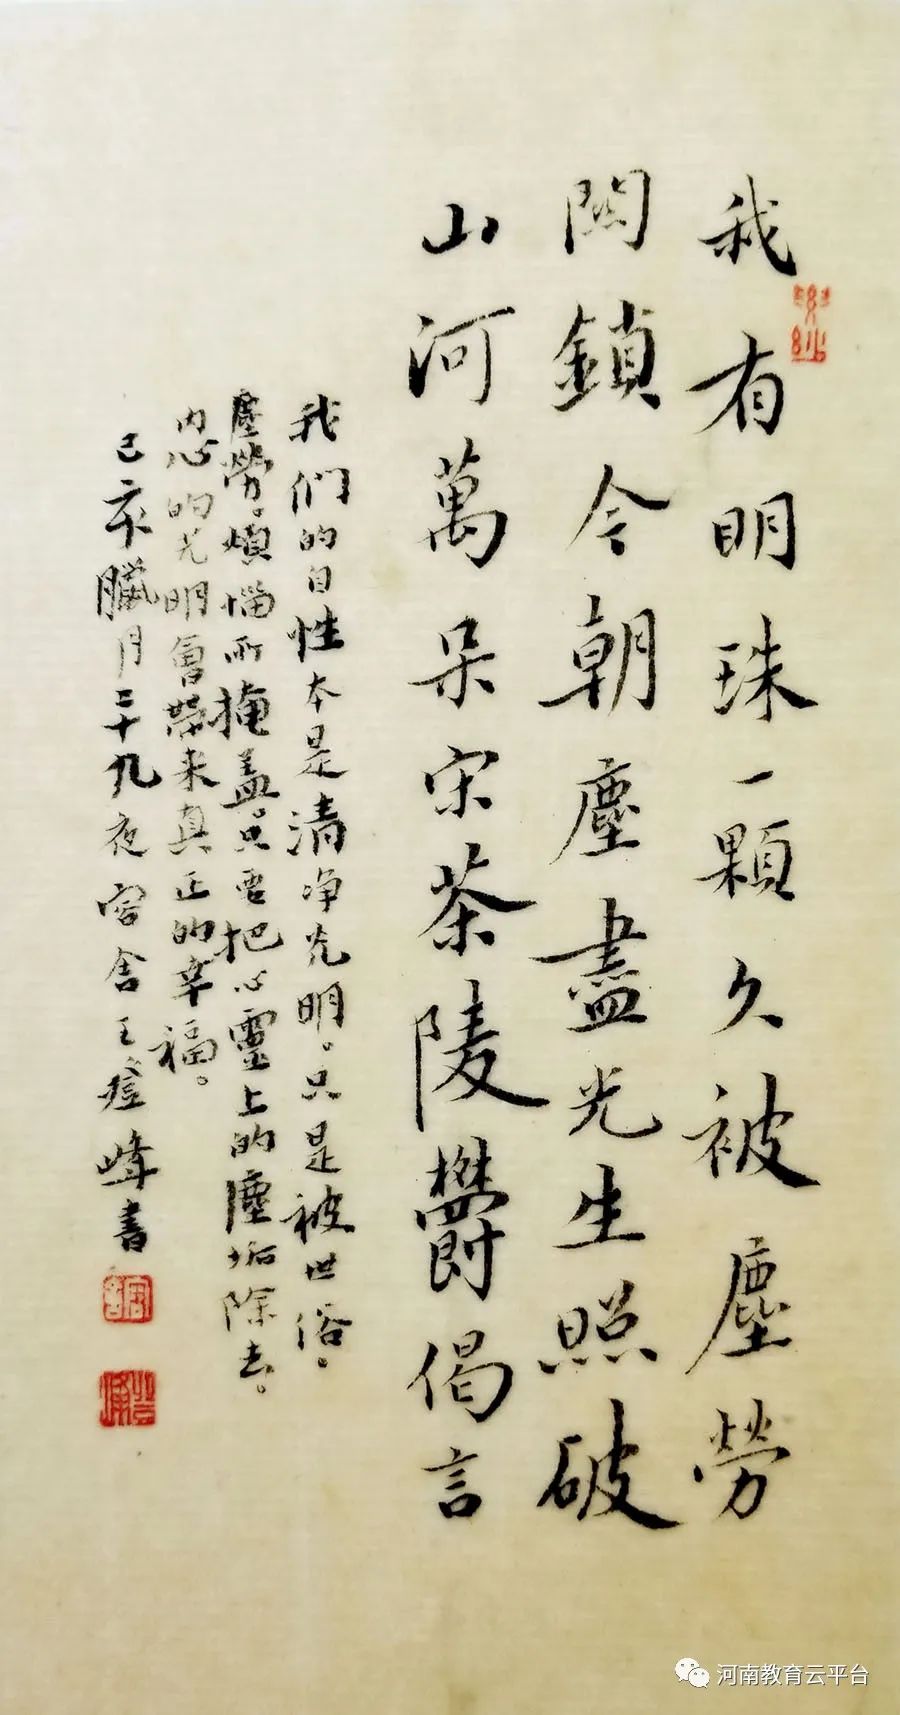 我有明珠一顆久被塵勞
関鎖今朝塵盡光生照破
山河萬朵宋茶陵欝偈言
我们的自性本是清净光明。只是被世俗。
塵勞。煩惱所掩盖。只要把心靈上的塵垢除去。
内心的光明會帶来真正的幸福。
己亥臘月二十九夜容舍王登峰書
河南教育云平台